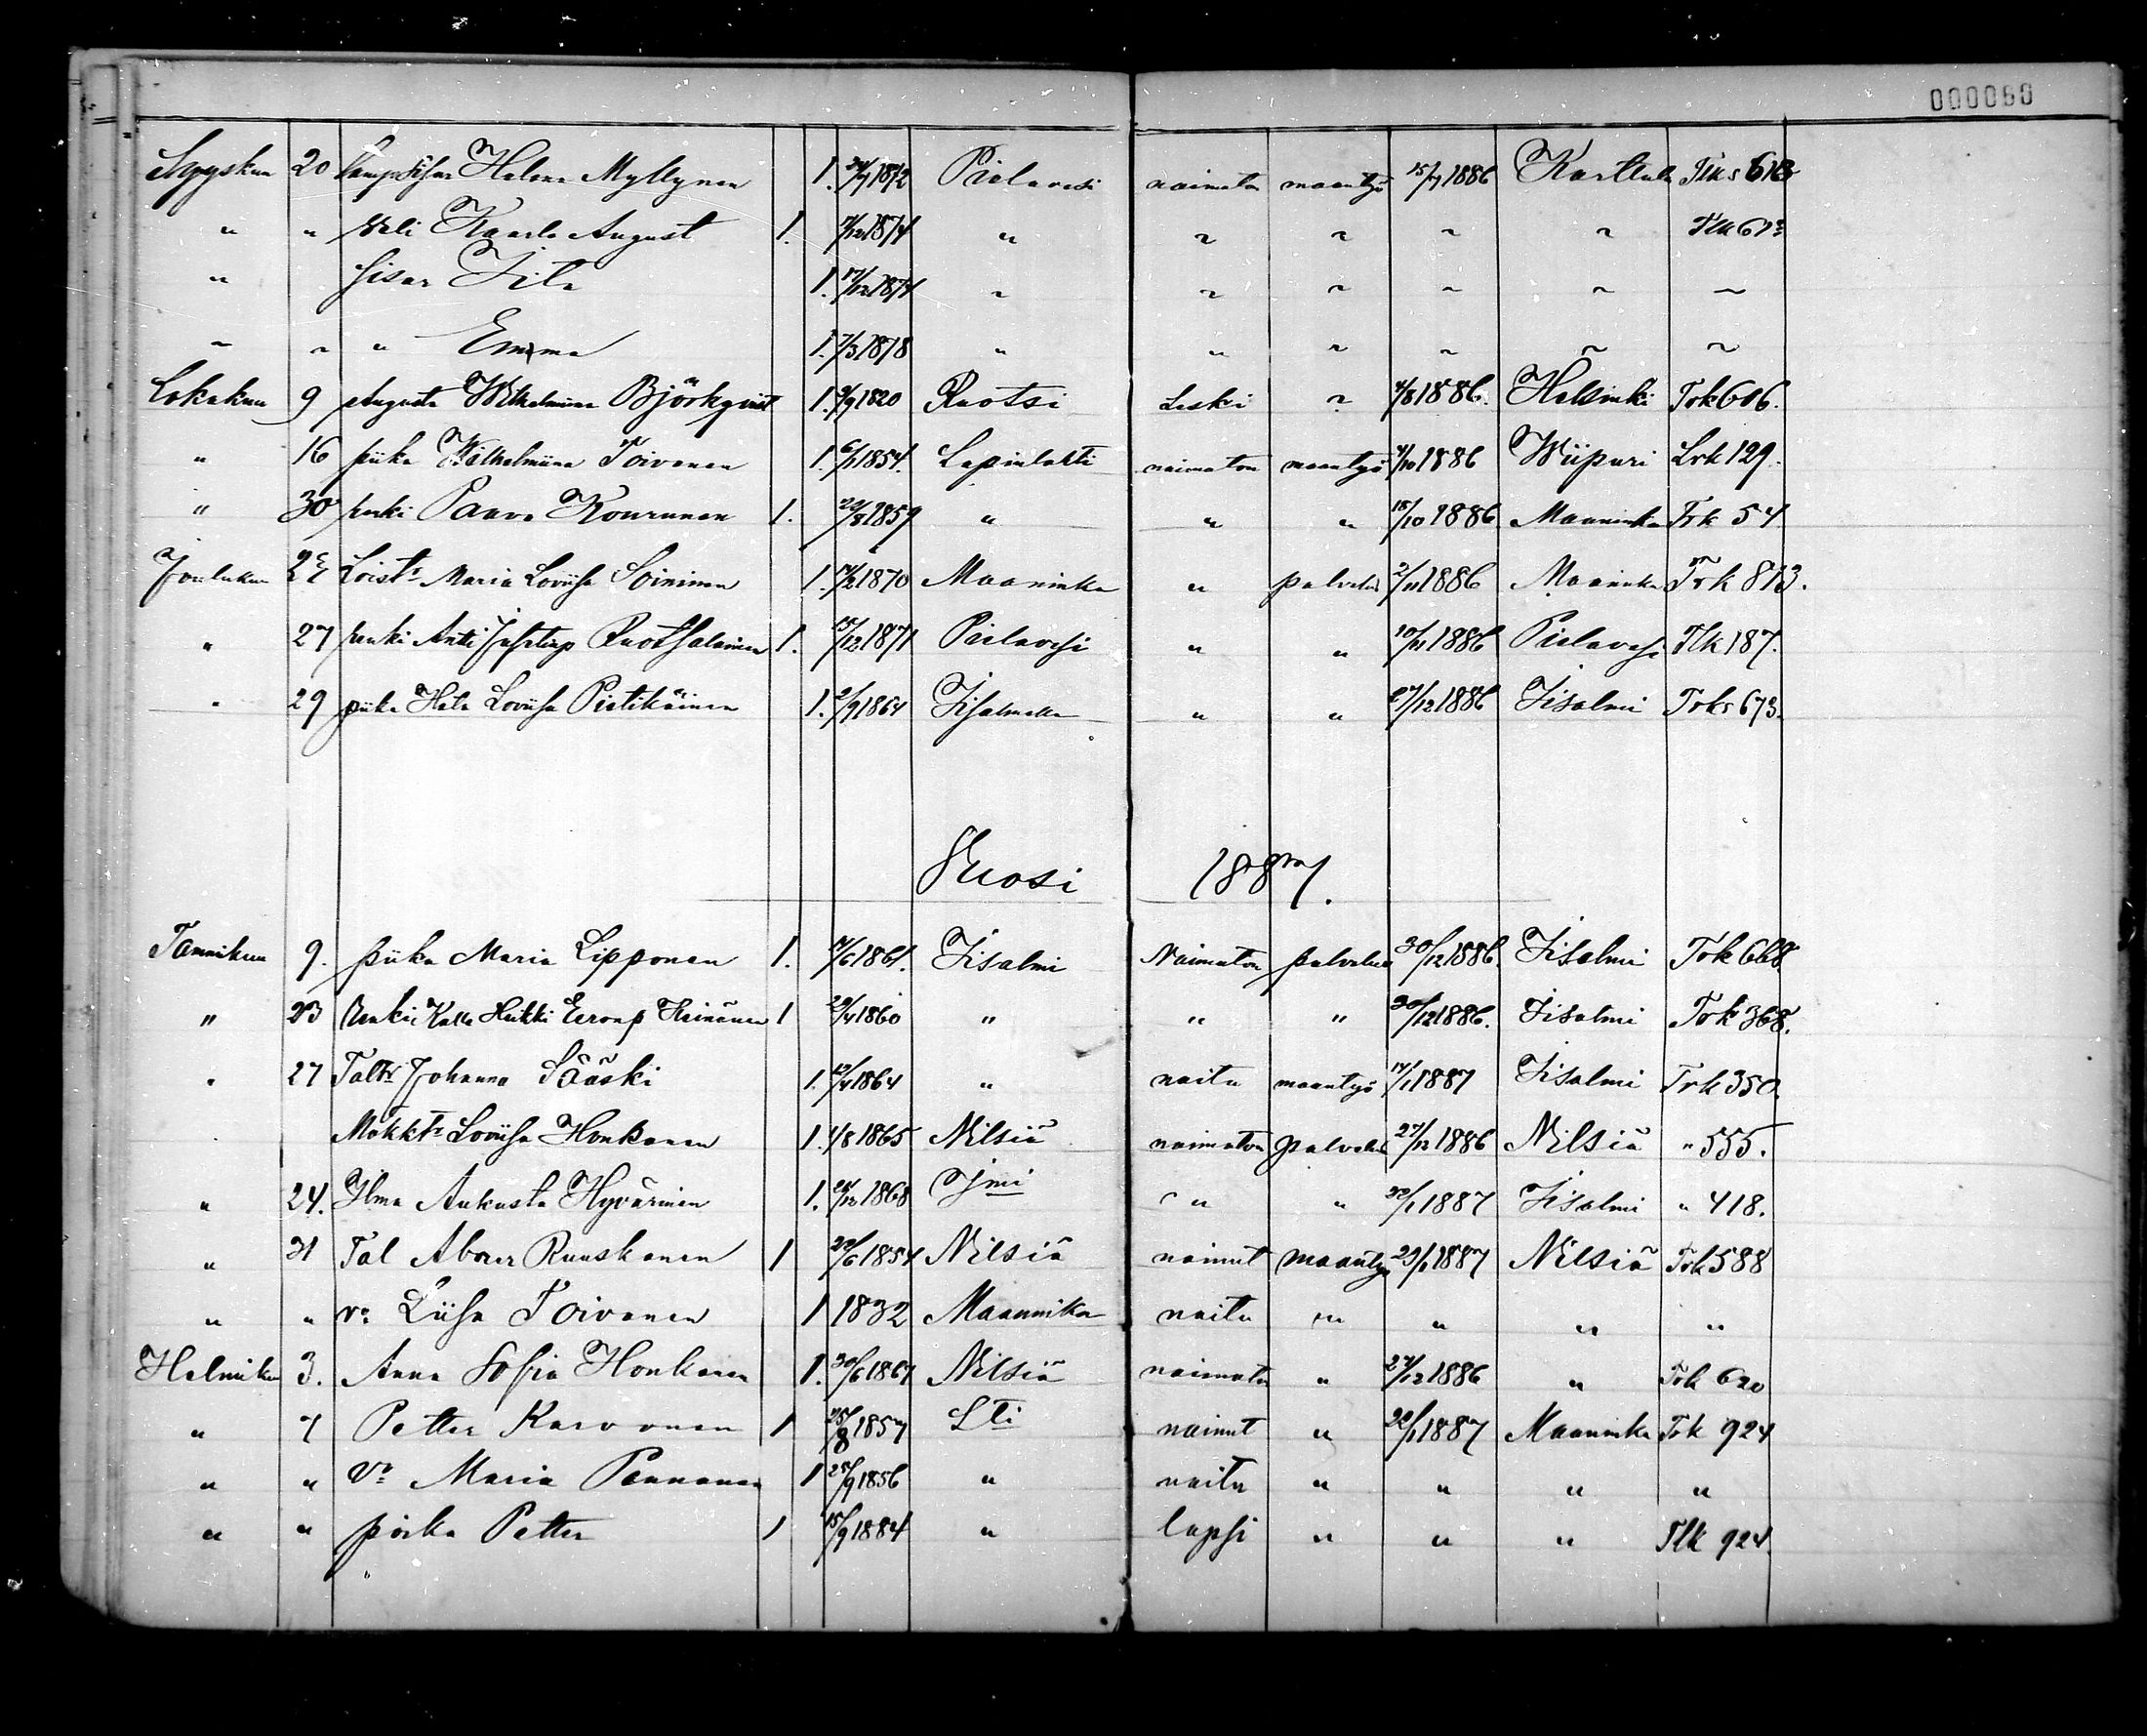 000090
Syyskuu 20 Helena Myllynen 1. 1872 Pielavesi naimaton maantyö 15/7 1886 Karttula Tlks 613
" " Veli Kaarlo August 1. 7/12 1874 " " " " " Tlk 613
" Sisar Iita 1. 17/12 1874 " " " " " "
" " " Emma 1. 7/3 1878 " " " " " "
Lokakuu 9 Augusta Wilhelmiina Björkqvist 1. 3/9 1820 Ruotsi Leski " 4/8 1886. Helsinki Tok 606.
" 16 piika Wilhelmiina Toivanen 1. 6/1 1854. Lapinlahti naimaton maantyö 4/10 1886 Wiipuri Lrk 129.
" 30 renki Paavo Kourunen 1. 23/8 1859 " " " 18/10 1886 Maaninka Trk 54
Joulukuu Loistr Maria Loviisa Soininen 1. 1870 Maaninka " palvelus 2/11 1886 Maaninka Trk 813.
" 27 renki Antti Ruotsalainen 1. 15/12 1871 Pielavesi " " 10/11 1886 Pielavesi Tlk 187.
" 29 piika Heta Loviisa Pietikäinen 1. 2/9 1864 " " 27/12 1886 Iisalmi Toks 673.
Vuosi 1887.
Tammikuu 9. piika Maria Lipponen 1. 1/6 1861. Iisalmi Naimaton palvelus 30/12 1886. Iisalmi Tok 668.
" 23 Renki Kalle Heikki Eeronp Heinänen 1 29/4 1860 " " " 30/12 1886. Iisalmi Tok 368.
" 27 Taltr Johanna Sääski 1. 13/4 1864 " naitu maantyö 14/1 1887 Iisalmi Trk 350.
Mökktr Loviisa Honkanen 1. 1/8 1865 Nilsiä naimaton palvelus 27/12 1886 Nilsiä " 555.
" 24. Ilma Aukusta Hyvärinen 1. 24/12 1868 Ijmi " " 22/1 1887 Iisalmi " 418.
" 31 Tal Abner Ruuskanen 1 22/6 1854 Nilsiä nainut maantyö 29/1 1887 Nilsiä Tok 588
" " vo Liisa Toivanen 1 1832 Maaninka naitu " " " "
Helmikuu 3. Anna Sofia Honkanen 1. 30/6 1867 Nilsiä naimaton " 27/12 1886 " Tok 620
" 7 Petter Karvonen 1 25/8 1857 Lti nainut " 22/1 1887 Maaninka Tok 924
" " Vo Maria Pennanen 1 25/9 1856 " naitu " " " "
" " poika Petter 1 15/9 1884 " lapsi " " " Tlk 924.